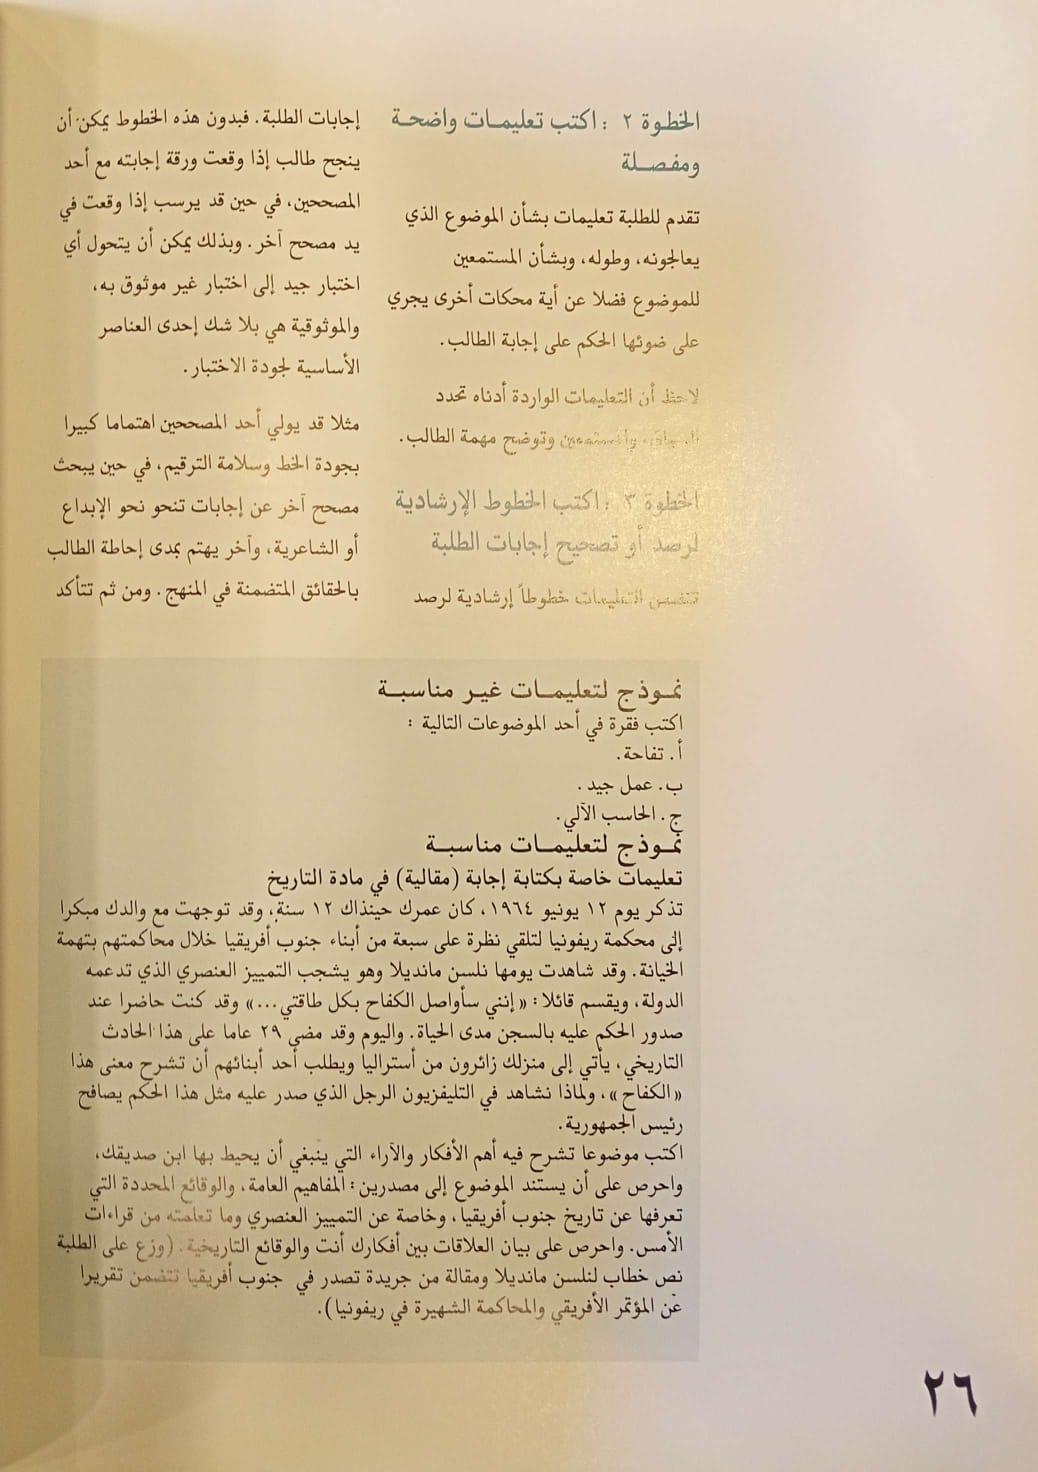 الخطوة ٢ : اكتب تعليمات واضحة
ومفصلة
تقدم للطلبة تعليمات بشأن الموضوع الذي
يعالجونه، وطوله، وبشأن المستمعين
للموضوع فضلا عن أية محكات أخرى يجري
على ضوئها الحكم على إجابة الطالب.
لاحظ أن التعليمات الواردة أدناه تحدد
والمستمعين وتوضح مهمة الطالب.
الخطوة ٣ : اكتب الخطوط الإرشادية
لرصد أو تصحيح إجابات الطلبة
تتضمن التعليمات خطوطاً إرشادية لرصد
إجابات الطلبة. فبدون هذه الخطوط يمكن أن
ينجح طالب إذا وقعت ورقة إجابته مع أحد
المصححين، في حين قد يرسب إذا وقعت في
يد مصحح آخر. وبذلك يمكن أن يتحول أي
اختبار جيد إلى اختبار غير موثوق به،
والموثوقية هي بلا شك إحدى العناصر
الأساسية لجودة الاختبار.
مثلا قد يولي أحد المصححين اهتماما كبيرا
بجودة الخط وسلامة الترقيم، في حين يبحث
مصحح آخر عن إجابات تنحو نحو الإبداع
أو الشاعرية، وآخر يهتم بمدى إحاطة الطالب
بالحقائق المتضمنة في المنهج. ومن ثم تتأكد
نموذج لتعليمات غير مناسبة
اكتب فقرة في أحد الموضوعات التالية :
أ. تفاحة.
ب. عمل جيد.
ج. الحاسب الآلي.
نموذج لتعليمات مناسبة
تعليمات خاصة بكتابة إجابة (مقالية) في مادة التاريخ
تذكر يوم ١٢ يونيو ١٩٦٤، كان عمرك حينذاك ١٢ سنة، وقد توجهت مع والدك مبكرا
إلى محكمة ريفونيا لتلقي نظرة على سبعة من أبناء جنوب أفريقيا خلال محاكمتهم بتهمة
الخيانة. وقد شاهدت يومها نلسن مانديلا وهو يشجب التمييز العنصري الذي تدعمه
الدولة، ويقسم قائلا: «إنني سأواصل الكفاح بكل طاقتي...» وقد كنت حاضرا عند
صدور الحكم عليه بالسجن مدى الحياة. واليوم وقد مضى ٢٩ عاما على هذا الحادث
التاريخي، يأتي إلى منزلك زائرون من أستراليا ويطلب أحد أبنائهم أن تشرح معنى هذا
«الكفاح»، ولماذا نشاهد في التليفزيون الرجل الذي صدر عليه مثل هذا الحكم يصافح
رئيس الجمهورية.
اكتب موضوعا تشرح فيه أهم الأفكار والآراء التي ينبغي أن يحيط بها ابن صديقك،
واحرص على أن يستند الموضوع إلى مصدرين : المفاهيم العامة، والوقائع المحددة التي
تعرفها عن تاريخ جنوب أفريقيا، وخاصة عن التمييز العنصري وما تعلمته من قراءات
الأمس. واحرص على بيان العلاقات بين أفكارك أنت والوقائع التاريخية. (وزع على الطلبة
نص خطاب لنلسن مانديلا ومقالة من جريدة تصدر في جنوب أفريقيا تتضمن تقريرا
عن المؤتمر الأفريقي والمحاكمة الشهيرة في ريفونيا).
٢٦